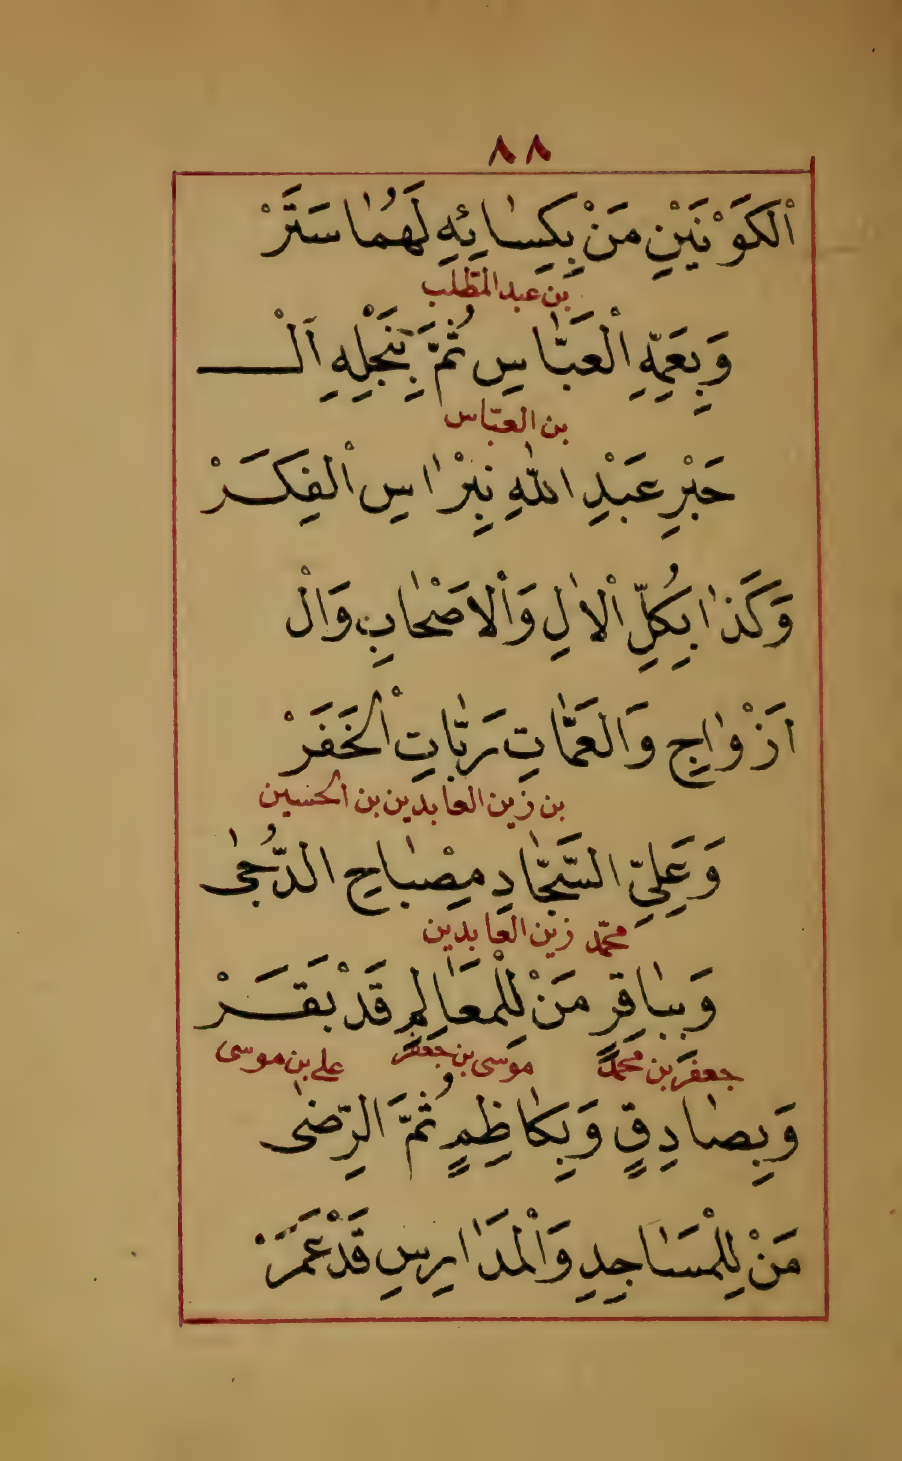 ٨٨
اْلكَوْنَيْنِ مَنْ بِكِسٰائِهِ لَهُمٰا سَتَرْ
بن عبد المطلب
وَبِعَمِّهِ الْعَبّٰاسِ ثُمَّ بِنَجْلِهِ اَلْـ
بن العبّاس
حَبْرِ عَبْدِ اللّٰهِ نِبْرٰاسِ اْلفِكَرْ
وَكَذٰا بِكُلِّ اْلاٰلِ وَاْلاَصْحٰابِ وَالْ
اَزْوٰاجِ وَالعَمّٰاتِ رَبّٰاتِ اْلخَفَرْ
بن زين العابدين بن الحسين
وَعَلِيِّ السَّجّٰادِ مِصْبٰاحِ الدُّجٰى
محمّد زين العابدين
وَبِبٰاقِرٍ مَنْ لِلْمَعٰالِمِ قَدْ بَقَرْ
جعفر بن محمّد موسى بن جعفر علي بن موسى
وَبِصٰادِقٍ وَبِكٰاظِمٍ ثُمَّ الرِّضٰى
مَنْ لِلْمَسٰاجِدِ وَاْلمَدٰارِسِ قَدْ عَمَرْ